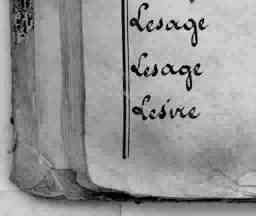 Lesage
Lesage
Lesire